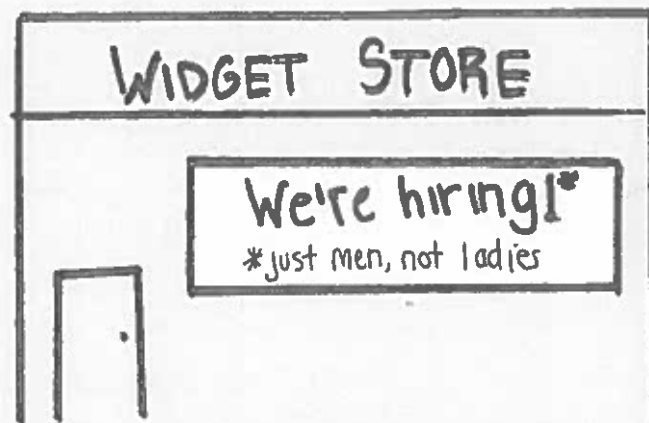 WIDGET STORE
We're hiring!*
*just men, not ladies